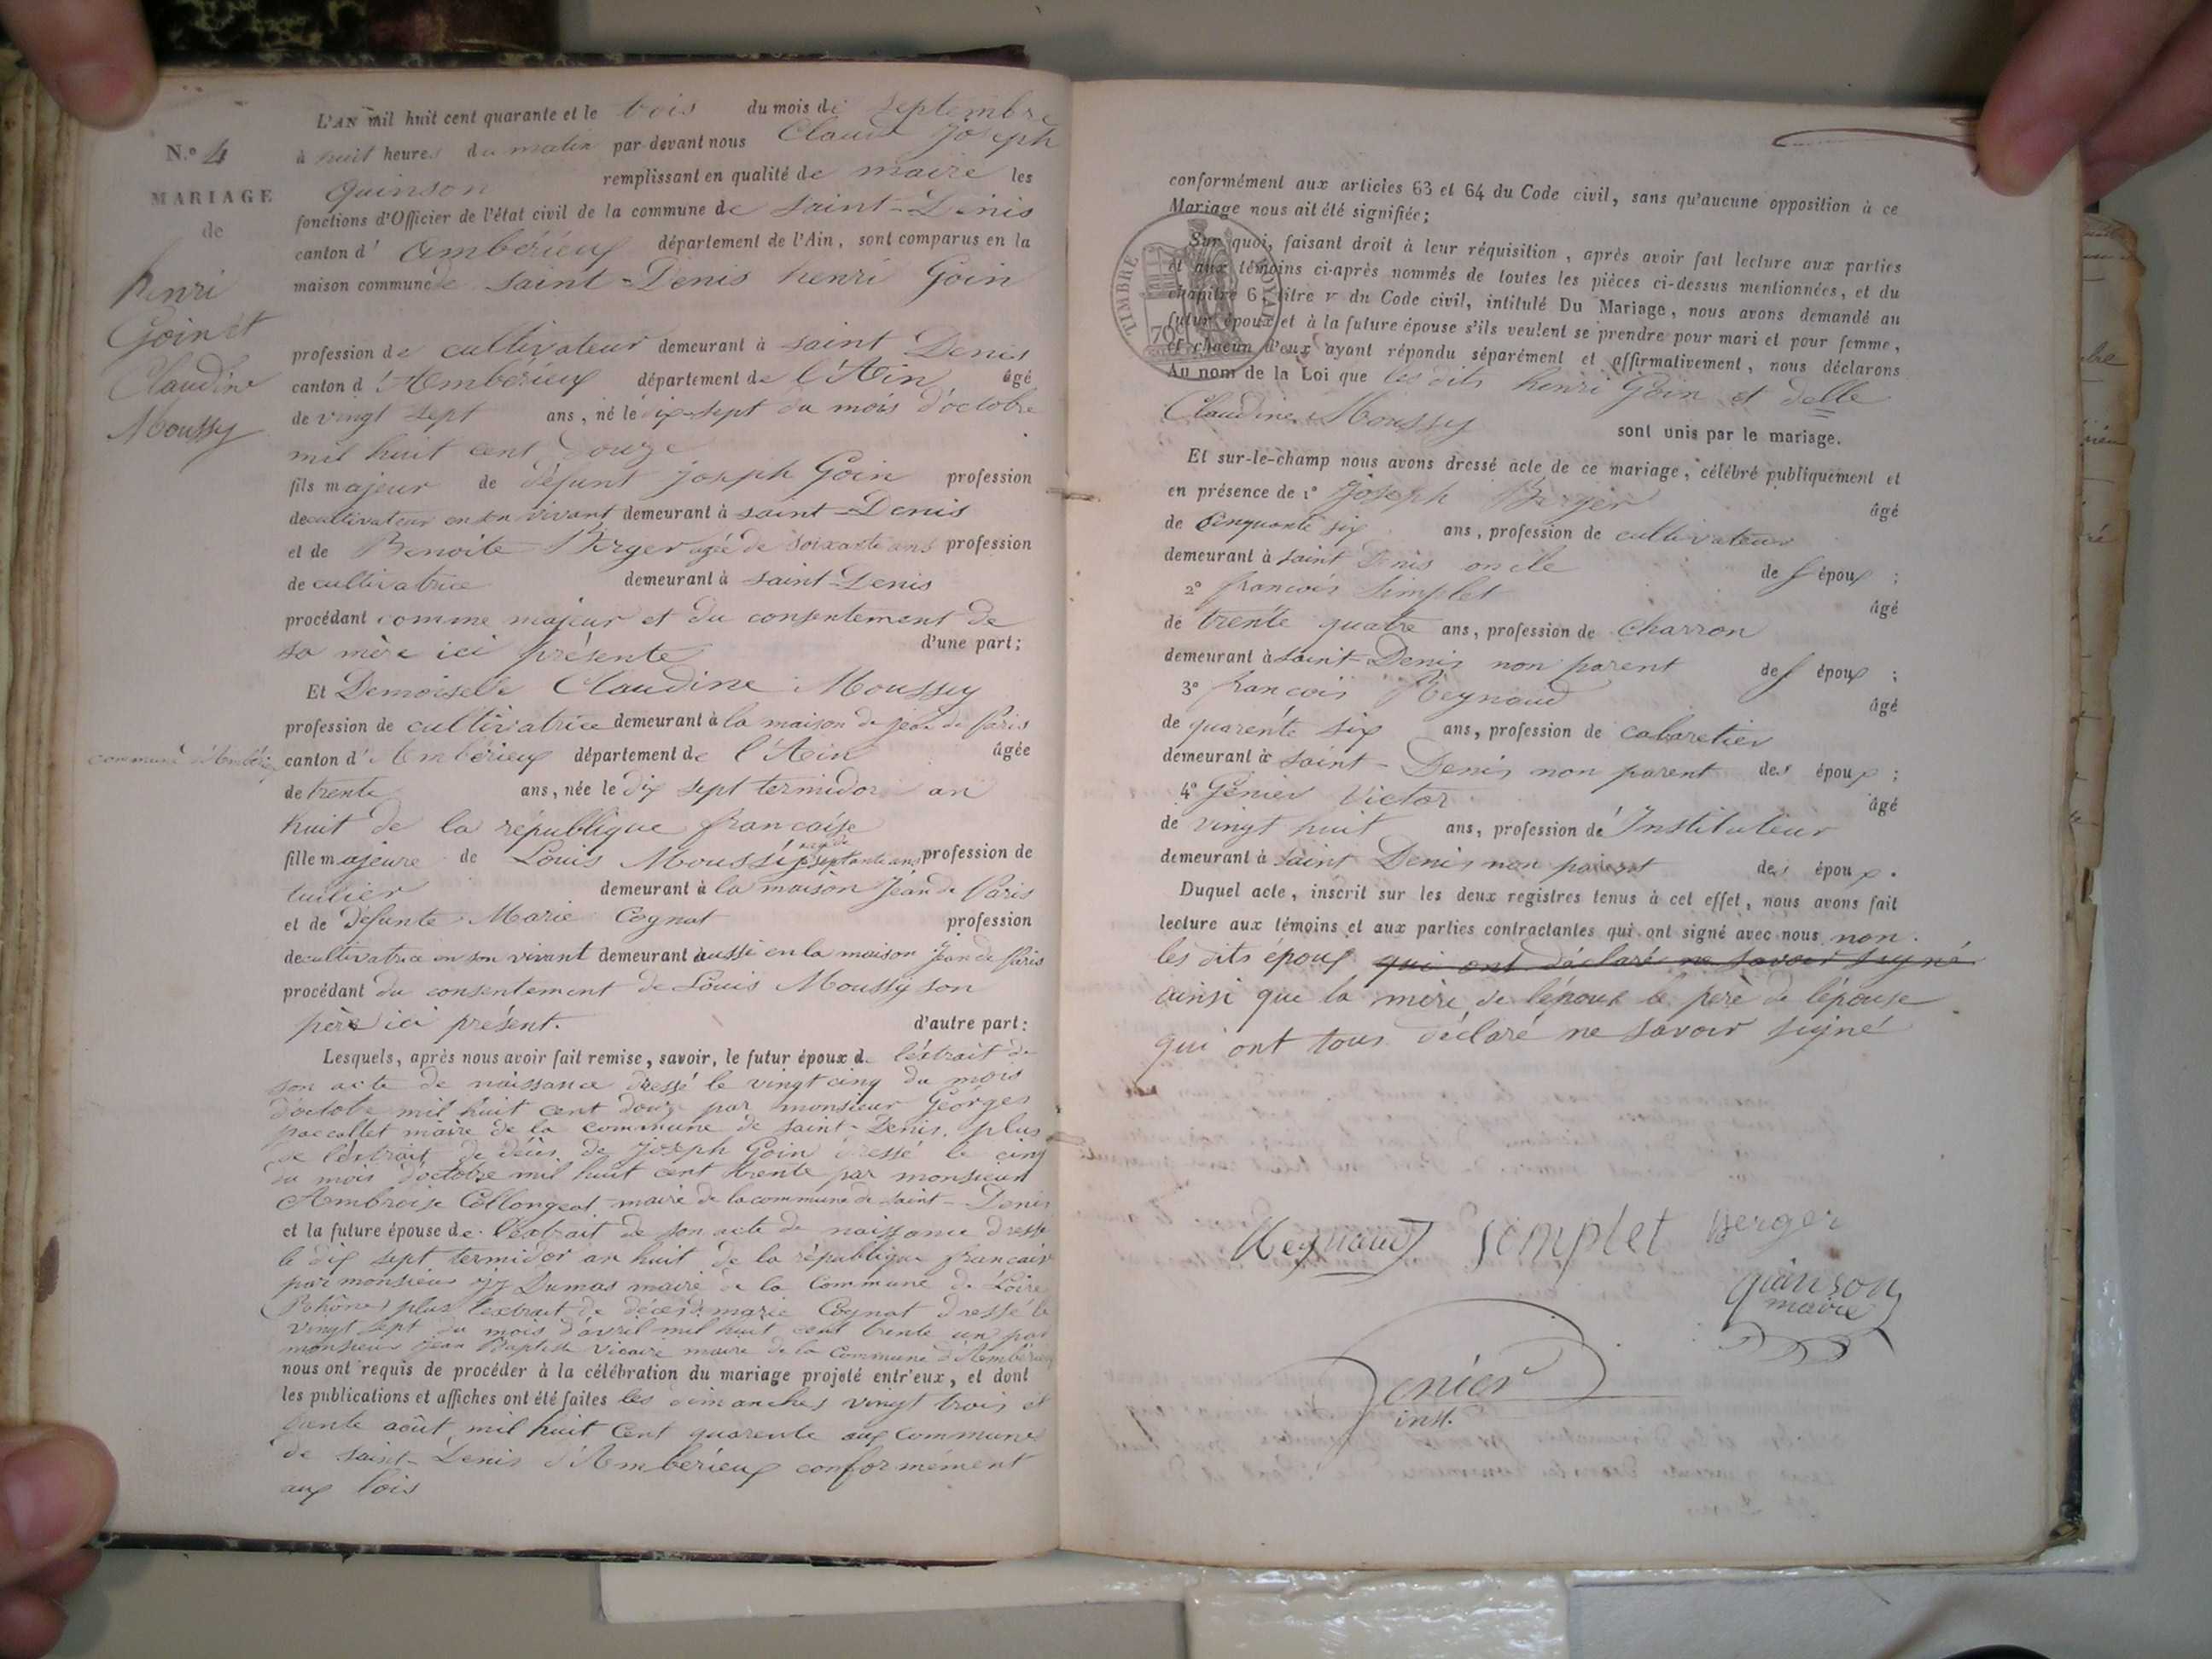 N.º 4
MARIAGE
de
henri
Goin et
Claudine
Moussy
L'AN mil huit cent quarante et le trois du mois de septembre
à huit heures du matin par-devant nous Claude Joseph
Quinson remplissant en qualité de maire les
fonctions d'Officier de l'état civil de la commune de saint-Denis
canton d'ambérieux département de l'Ain, sont comparus en la
maison commune de saint-Denis henri Goin
profession de cultivateur demeurant à saint Denis
canton d'Ambérieux département de l'Ain âgé
de vingt sept ans, né le dix-sept du mois d'octobre
mil huit cent douze
fils majeur de défunt joseph Goin profession
de cultivateur en son vivant demeurant à saint-Denis
et de Benoite Berger agée de soixante ans profession
de cultivatrice demeurant à saint-Denis
procédant comme majeur et du consentement de
sa mère ici présente d'une part;
Et Demoiselle Claudine Moussy
profession de cultivatrice demeurant à la maison de jean de Paris
commune d'Ambérieux
canton d'Ambérieux département de l'Ain âgée
de trente ans, née le dix sept termidor an
huit de la république francaise
fille majeure de Louis Moussy agé de septante ans profession de
tuilier demeurant à la maison Jean de Paris
et de défunte Marie Cognat profession
de cultivatrice en son vivant demeurant aussi en la maison Jean de Paris
procédant du consentement de Louis Moussy son
père ici présent. d'autre part:
Lesquels, après nous avoir fait remise, savoir, le futur époux d. l'éxtrait de
son acte de naissance dressé le vingt cinq du mois
d'octobre mil huit cent douze par monsieur Géorges
paccallet maire de la commune de saint-Denis, plus
de l'éxtrait de décès de joseph Goin dressé le cinq
du mois d'octobre mil huit cent trente par monsieur
Ambroise Collongeat maire de la commune de saint-Denis
et la future épouse de l'extrait de son acte de naissance dressé
le dix sept termidor an huit de la république francaise
par monsieur Dumas maire de la Commune de Loire
(Rhône) plus l'extrait de décès de marie Cognat dressé le
vingt sept du mois d'avril mil huit cent trente un par
monsieur jean Baptiste Vicaire maire de la Commune d'Ambérieux
nous ont requis de procéder à la célébration du mariage projeté entr'eux, et dont
les publications et affiches ont été faites les dimanches vingt trois et
trente août mil huit cent quarente aux communes
de saint-Denis d'Ambérieux conformément
aux lois
conformément aux articles 63 et 64 du Code civil, sans qu'aucune opposition à ce
Mariage nous ait été signifiée;
TIMBRE ROYAL
70c
Sur quoi, faisant droit à leur réquisition, après avoir fait lecture aux parties
et aux témoins ci-après nommés de toutes les pièces ci-dessus mentionnées, et du
chapitre 6, titre v du Code civil, intitulé Du Mariage, nous avons demandé au
futur époux et à la future épouse s'ils veulent se prendre pour mari et pour femme,
et chacun d'eux ayant répondu séparément et affirmativement, nous déclarons
Au nom de la Loi que les dits henri Goin et delle
Claudine Moussy sont unis par le mariage.
Et sur-le-champ nous avons dressé acte de ce mariage, célébré publiquement et
en présence de 1º Joseph Berger âgé
de cinquante six ans, profession de cultivateur
demeurant à saint Denis oncle de l'époux;
2º francois Simplet âgé
de trente quatre ans, profession de charron
demeurant à saint-Denis non parent des époux;
3º françois Reynaud âgé
de quarente six ans, profession de cabaretier
demeurant à saint-Denis non parent des époux;
4º Génier Victor âgé
de vingt huit ans, profession de Instituteur
demeurant à saint Denis non parent des époux.
Duquel acte, inscrit sur les deux registres tenus à cet effet, nous avons fait
lecture aux témoins et aux parties contractantes qui ont signé avec nous non
les dits époux qui ont déclaré ne savoir signé
ainsi que la mère de l'époux le père de l'épouse
qui ont tous déclaré ne savoir signé
Reynaud Simplet Berger
Quinson
maire
Genier
inst.